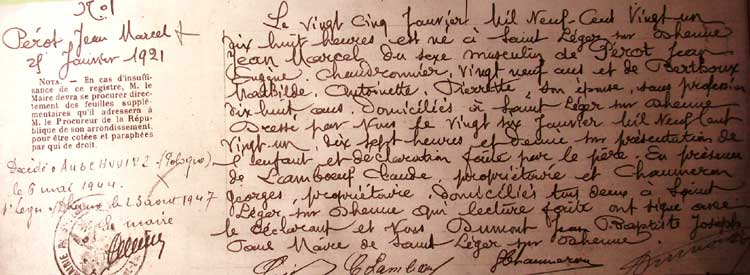 N°1
Pérot, Jean Marcel
25 Janvier 1921
NOTA – En cas d'insuffisance
de ce registre, M. le
Maire devra se procurer directement
des feuilles supplémentaires
qu'il adressera à
M. le Procureur de la République
de son arrondissement,
pour être cotées et paraphées
par qui de droit.
Décédé à AUSCHWITZ (Pologne)
le 8 mai 1944.
St Léger s/ Dheune le 23 août 1947
Le maire
Le Vingt Cinq Janvier Mil Neuf-Cent Vingt un
dix huit heures est né à Saint Léger sur Dheune
Jean Marcel du sexe masculin de Pérot Jean
Eugène, Chaudronnier, vingt neuf ans et de Berthoux
Mathilde, Antoinette, Pierrette, son épouse, sans profession
dix huit ans. Domiciliés à Saint Léger sur Dheune
Dressé par Nous le Vingt six Janvier Mil Neuf Cent
Vingt-un, dix sept heures et demie sur présentation de
l'enfant et déclaration faite par le père. En présence
de Lambœuf Claude propriétaire et Chaumeron
georges, propriétaire, domiciliés tous deux à Saint
Léger sur Dheune qui lecture faite ont signé avec
le déclarant et Nous Dumont Jean Baptiste Joseph
Maire de Saint Léger sur Dheune.